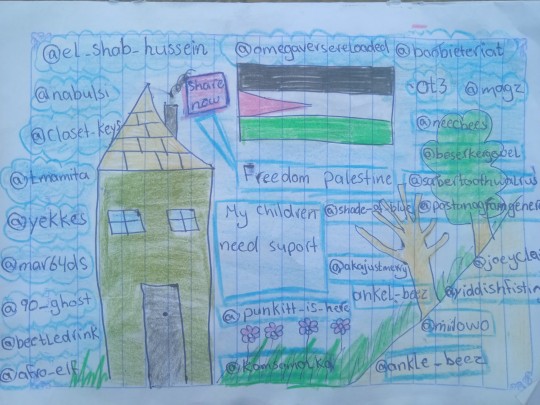 @el_shab_hussein
@omegaversereloaded
@baobieteriat
@nabulsi
share
now
@t3
@magz
@closet-keys
@neechees
@beserkerjewel
@tmamita
Freedom palestine
@sabertoothwalrus
@yekkes
My children
need suport
@shade-of-blue
@pastamagramgenera
@mar64ds
@akajustmerry
@joeycla
@90_ghost
ankel-beez
@yiddishfistin
@punkitt_is_here
@beetledrink
@miilowo
@afro_elf
@komsomolka
@ankle_beez